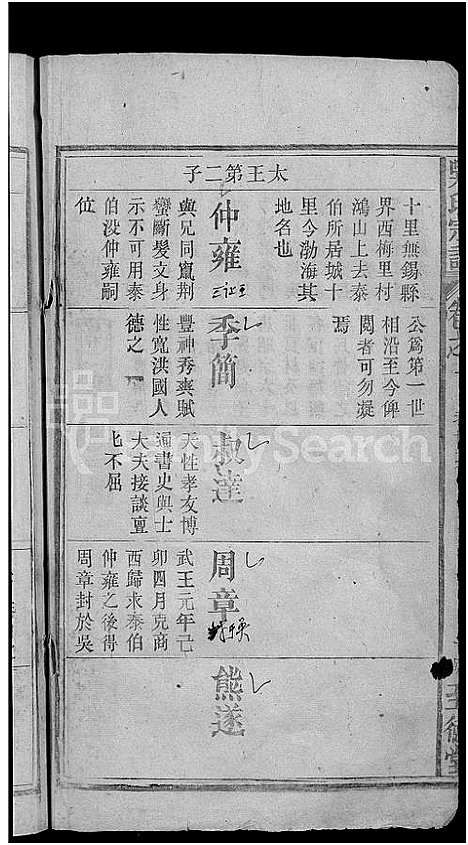 十里無錫縣
界西梅里村
鴻山上去泰
伯所居城十
里今渤海其
地名也
太王第二子
仲雍
與兄同竄荆
蠻斷髮文身
示不可用泰
伯没仲雍嗣
位
公爲第一世
相沿至今俾
閲者可勿凝
焉
季簡
豐神秀爽賦
性寬洪國人
德之
叔達
天性孝友博
遍書史與士
大夫接談亶
亶不屈
周章
武王元年己
卯四月克商
西歸求泰伯
仲雍之後得
周章封於吳
熊遂
FamilySearch